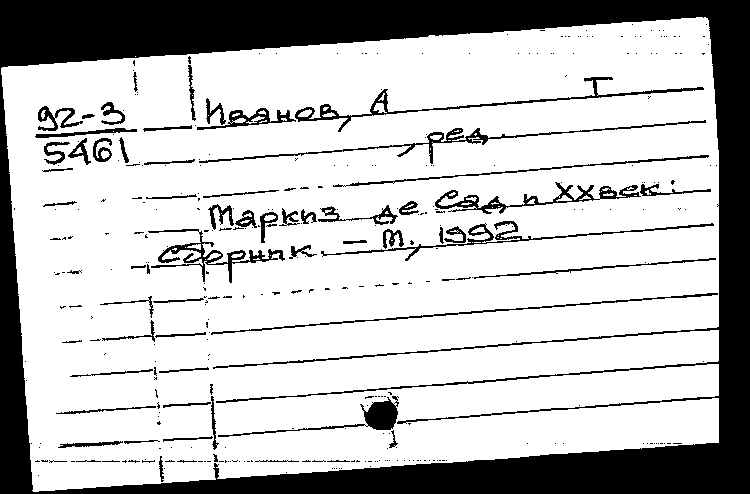 92-3
5461
Иванов, А Т
, ред.
Маркиз де Сад и XX век:
Сборник. – М., 1992.